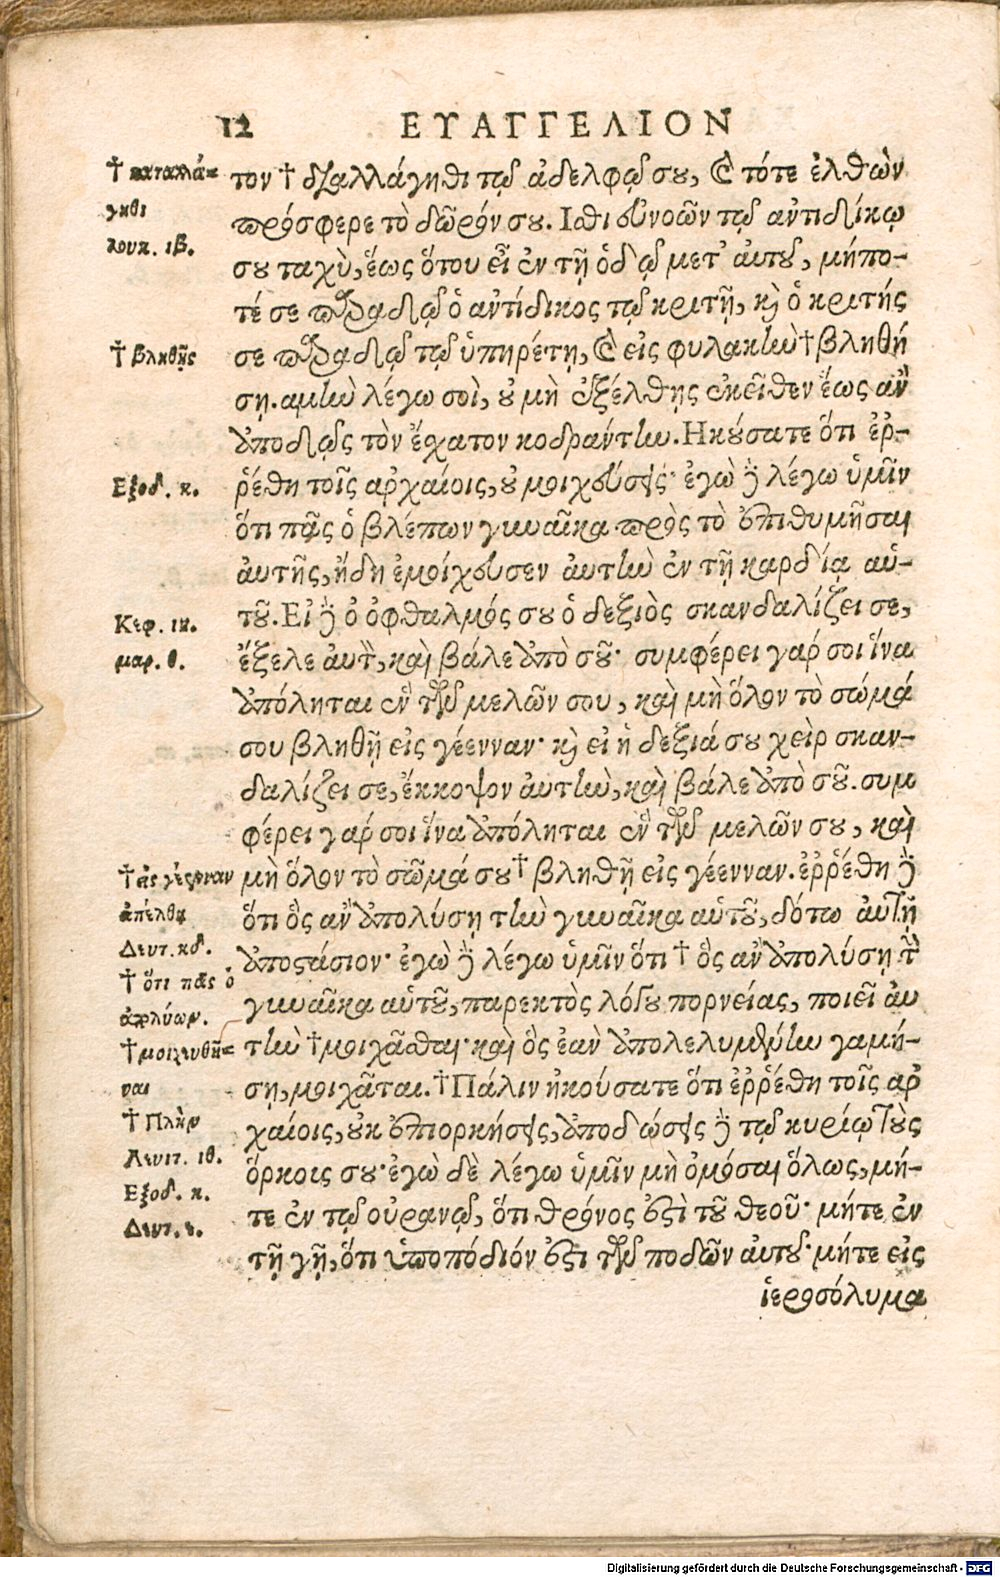 12 ΕΥΑΓΓΕΛΙΟΝ
† καταλλά-
γηθι
λουκ. ιβ.
† βληθῇς
Εξοδ. κ.
Κεφ. ιη.
μαρ. θ.
† εἰς γέενναν
ἀπέλθῃ
Δευτ. κδ.
† ὅτι πᾶς ὁ
ἀπολύων.
† μοιχευθῆ-
ναι
† Πλὴν
Λευιτ. ιθ.
Εξοδ. κ.
Δευτ. ε.
τον † διαλλάγηθι τῷ ἀδελφῷ σου, καὶ τότε ἐλθὼν
πρόσφερε τὸ δῶρόν σου. Ισθι εὐνοῶν τῷ ἀντιδίκῳ
σου ταχὺ, ἕως ὅτου εἶ ἐν τῇ ὁδῷ μετ' αὐτοῦ, μήπο-
τέ σε παραδῷ ὁ ἀντίδικος τῷ κριτῇ, καὶ ὁ κριτής
σε παραδῷ τῷ ὑπηρέτῃ, καὶ εἰς φυλακὴν † βληθή
σῃ. αμὴν λέγω σοὶ, οὐ μὴ ἐξέλθῃς ἐκεῖθεν ἕως ἂν
ἀποδῷς τὸν ἔσχατον κοδράντην. Ηκούσατε ὅτι ἐρ-
ῥέθη τοῖς αρχαίοις, οὐ μοιχεύσεις· ἐγὼ δὲ λέγω ὑμῖν
ὅτι πᾶς ὁ βλέπων γυναῖκα πρὸς τὸ ἐπιθυμῆσαι
ἀυτῆς, ἤδη ἐμοίχευσεν ἀυτὴν ἐν τῇ καρδίᾳ αὑ-
τοῦ. Εἰ δὲ ὁ ὀφθαλμός σου ὁ δεξιὸς σκανδαλίζει σε,
ἔξελε ἀυτὸν, καὶ βάλε ἀπὸ σοῦ· συμφέρει γάρ σοι ἵνα
ἀπόληται ἓν τῶν μελῶν σου, καὶ μὴ ὅλον τὸ σῶμά
σου βληθῇ εἰς γέενναν· καὶ εἰ ἡ δεξιά σου χεὶρ σκαν-
δαλίζει σε, ἔκκοψον ἀυτὴν, καὶ βάλε ἀπὸ σοῦ. συμ
φέρει γάρ σοι ἵνα ἀπόληται ἓν τῶν μελῶν σου, καὶ
μὴ ὅλον τὸ σῶμά σου † βληθῇ εἰς γέενναν. ἐῤῥέθη δὲ
ὅτι ὃς ἂν ἀπολύσῃ τὴν γυναῖκα αὑτοῦ, δότω ἀυτῇ
ἀποστάσιον· ἐγὼ δὲ λέγω ὑμῖν ὅτι † ὃς ἂν ἀπολύσῃ τὴν
γυναῖκα αὑτοῦ, παρεκτὸς λόγου πορνείας, ποιεῖ ἀυ
τὴν † μοιχᾶσθαι· καὶ ὃς ἐὰν ἀπολελυμένην γαμή-
σῃ, μοιχᾶται. † Πάλιν ἠκούσατε ὅτι ἐῤῥέθη τοῖς αρ
χαίοις, οὐκ ἐπιορκήσεις, ἀποδώσεις δὲ τῷ κυρίῳ τοὺς
ὅρκοις σου· ἐγὼ δὲ λέγω ὑμῖν μὴ ὀμόσαι ὅλως, μή-
τε ἐν τῷ οὐρανῷ, ὅτι θρόνος ἐστὶ τοῦ θεοῦ· μήτε ἐν
τῇ γῇ, ὅτι ὑποπόδιόν ἐστι τῶν ποδῶν ἀυτοῦ· μήτε εἰς
ἱεροσόλυμα
Digitalisierung gefördert durch die Deutsche Forschungsgemeinschaft - DFG